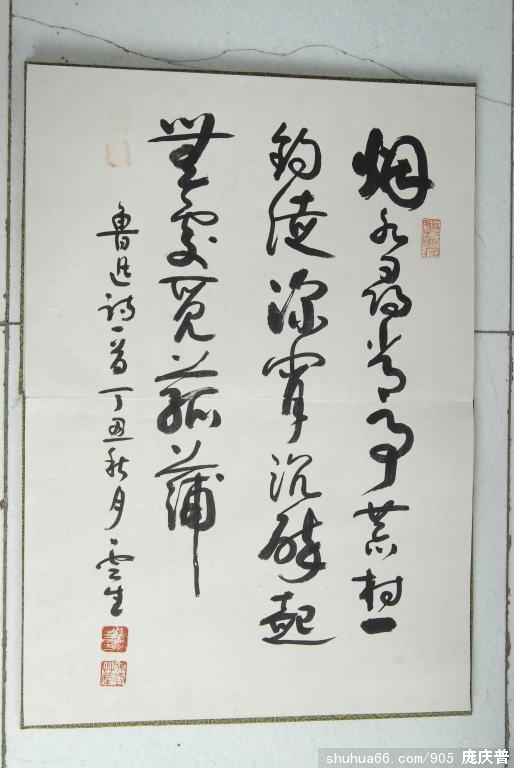 烟水尋常事荒村一
釣徒深宵沉醉起
無處覓菰蒲
魯迅詩一首丁丑秋月雲生
shuhua66.com/905 庞庆普